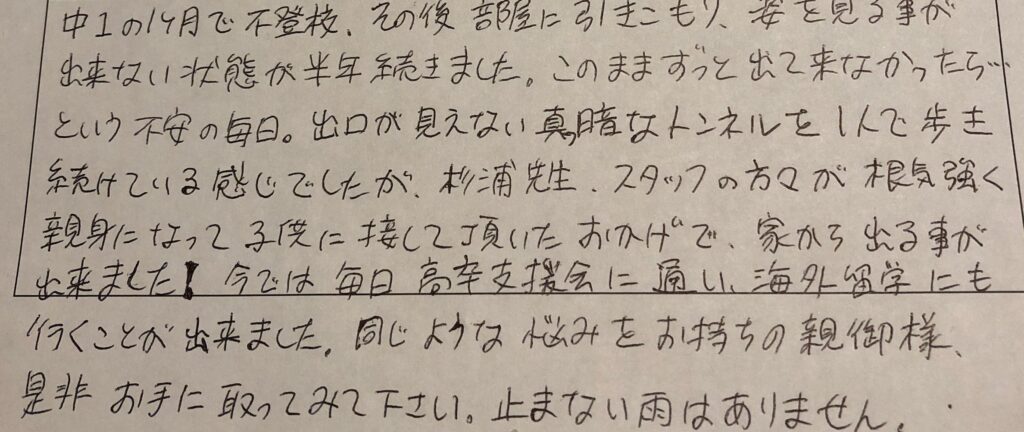 中1の1ヶ月で不登校、その後部屋に引きこもり、姿を見る事が
出来ない状態が半年続きました。このままずっと出て来なかったら…
という不安の毎日。出口が見えない真っ暗なトンネルを1人で歩き
続けている感じでしたが、杉浦先生、スタッフの方々が根気強く
親身になって子供に接して頂いたおかげで、家から出る事が
出来ました！今では毎日高卒支援会に通い、海外留学にも
行くことが出来ました。同じような悩みをお持ちの親御様、
是非お手に取ってみて下さい。止まない雨はありません。